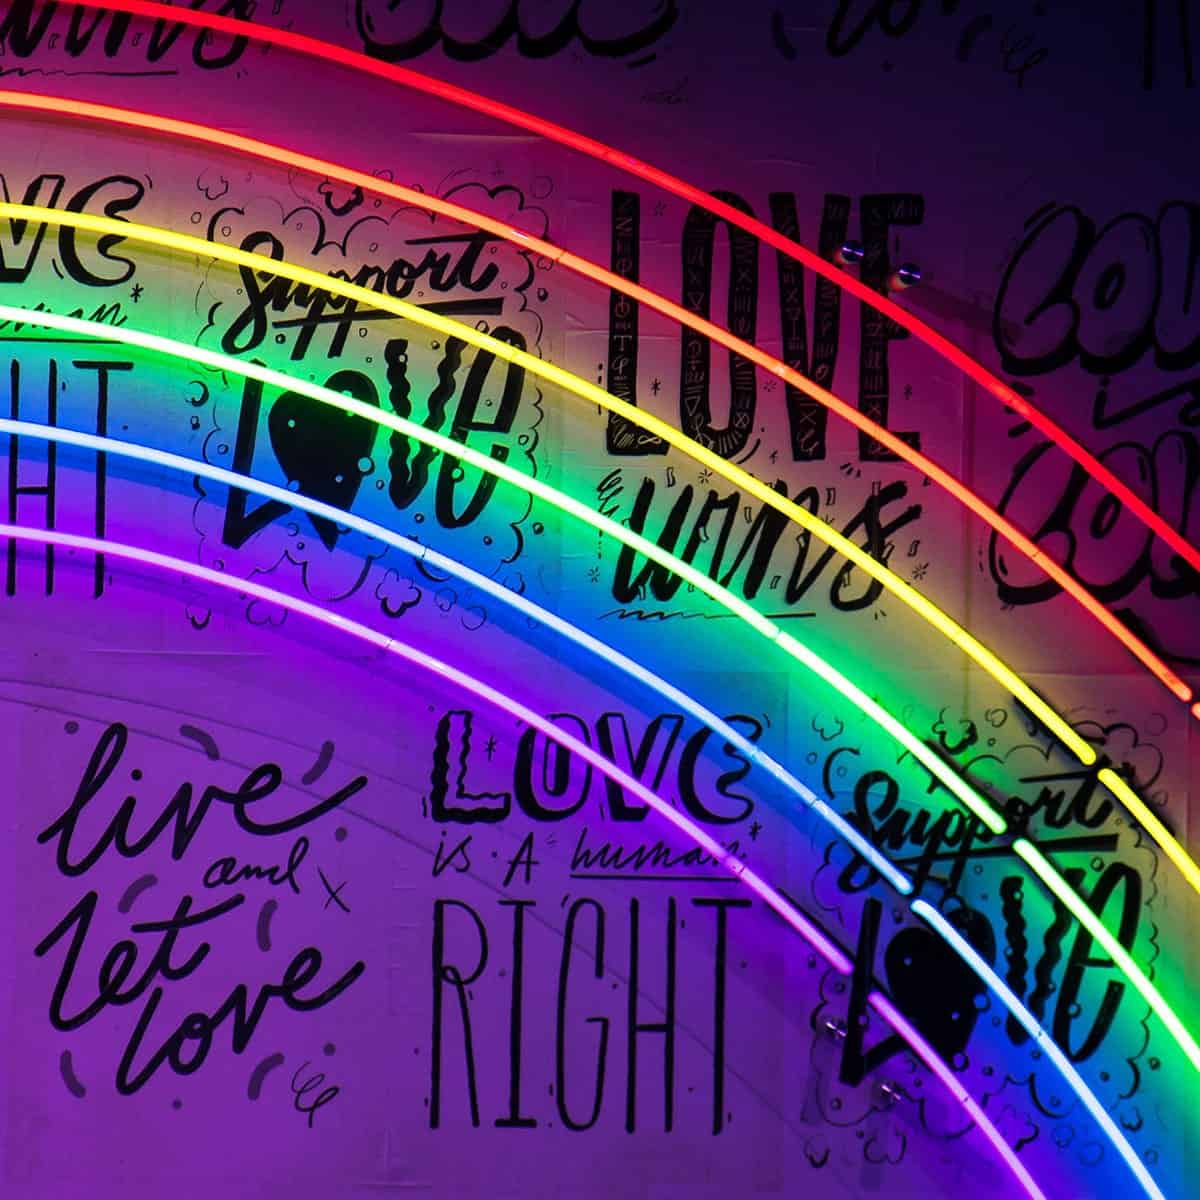 wins
LOVE
human
RIGHT
Support
LOVE
LOVE
wins
live
and
let
love
LOVE
is A human
RIGHT
Support
LOVE